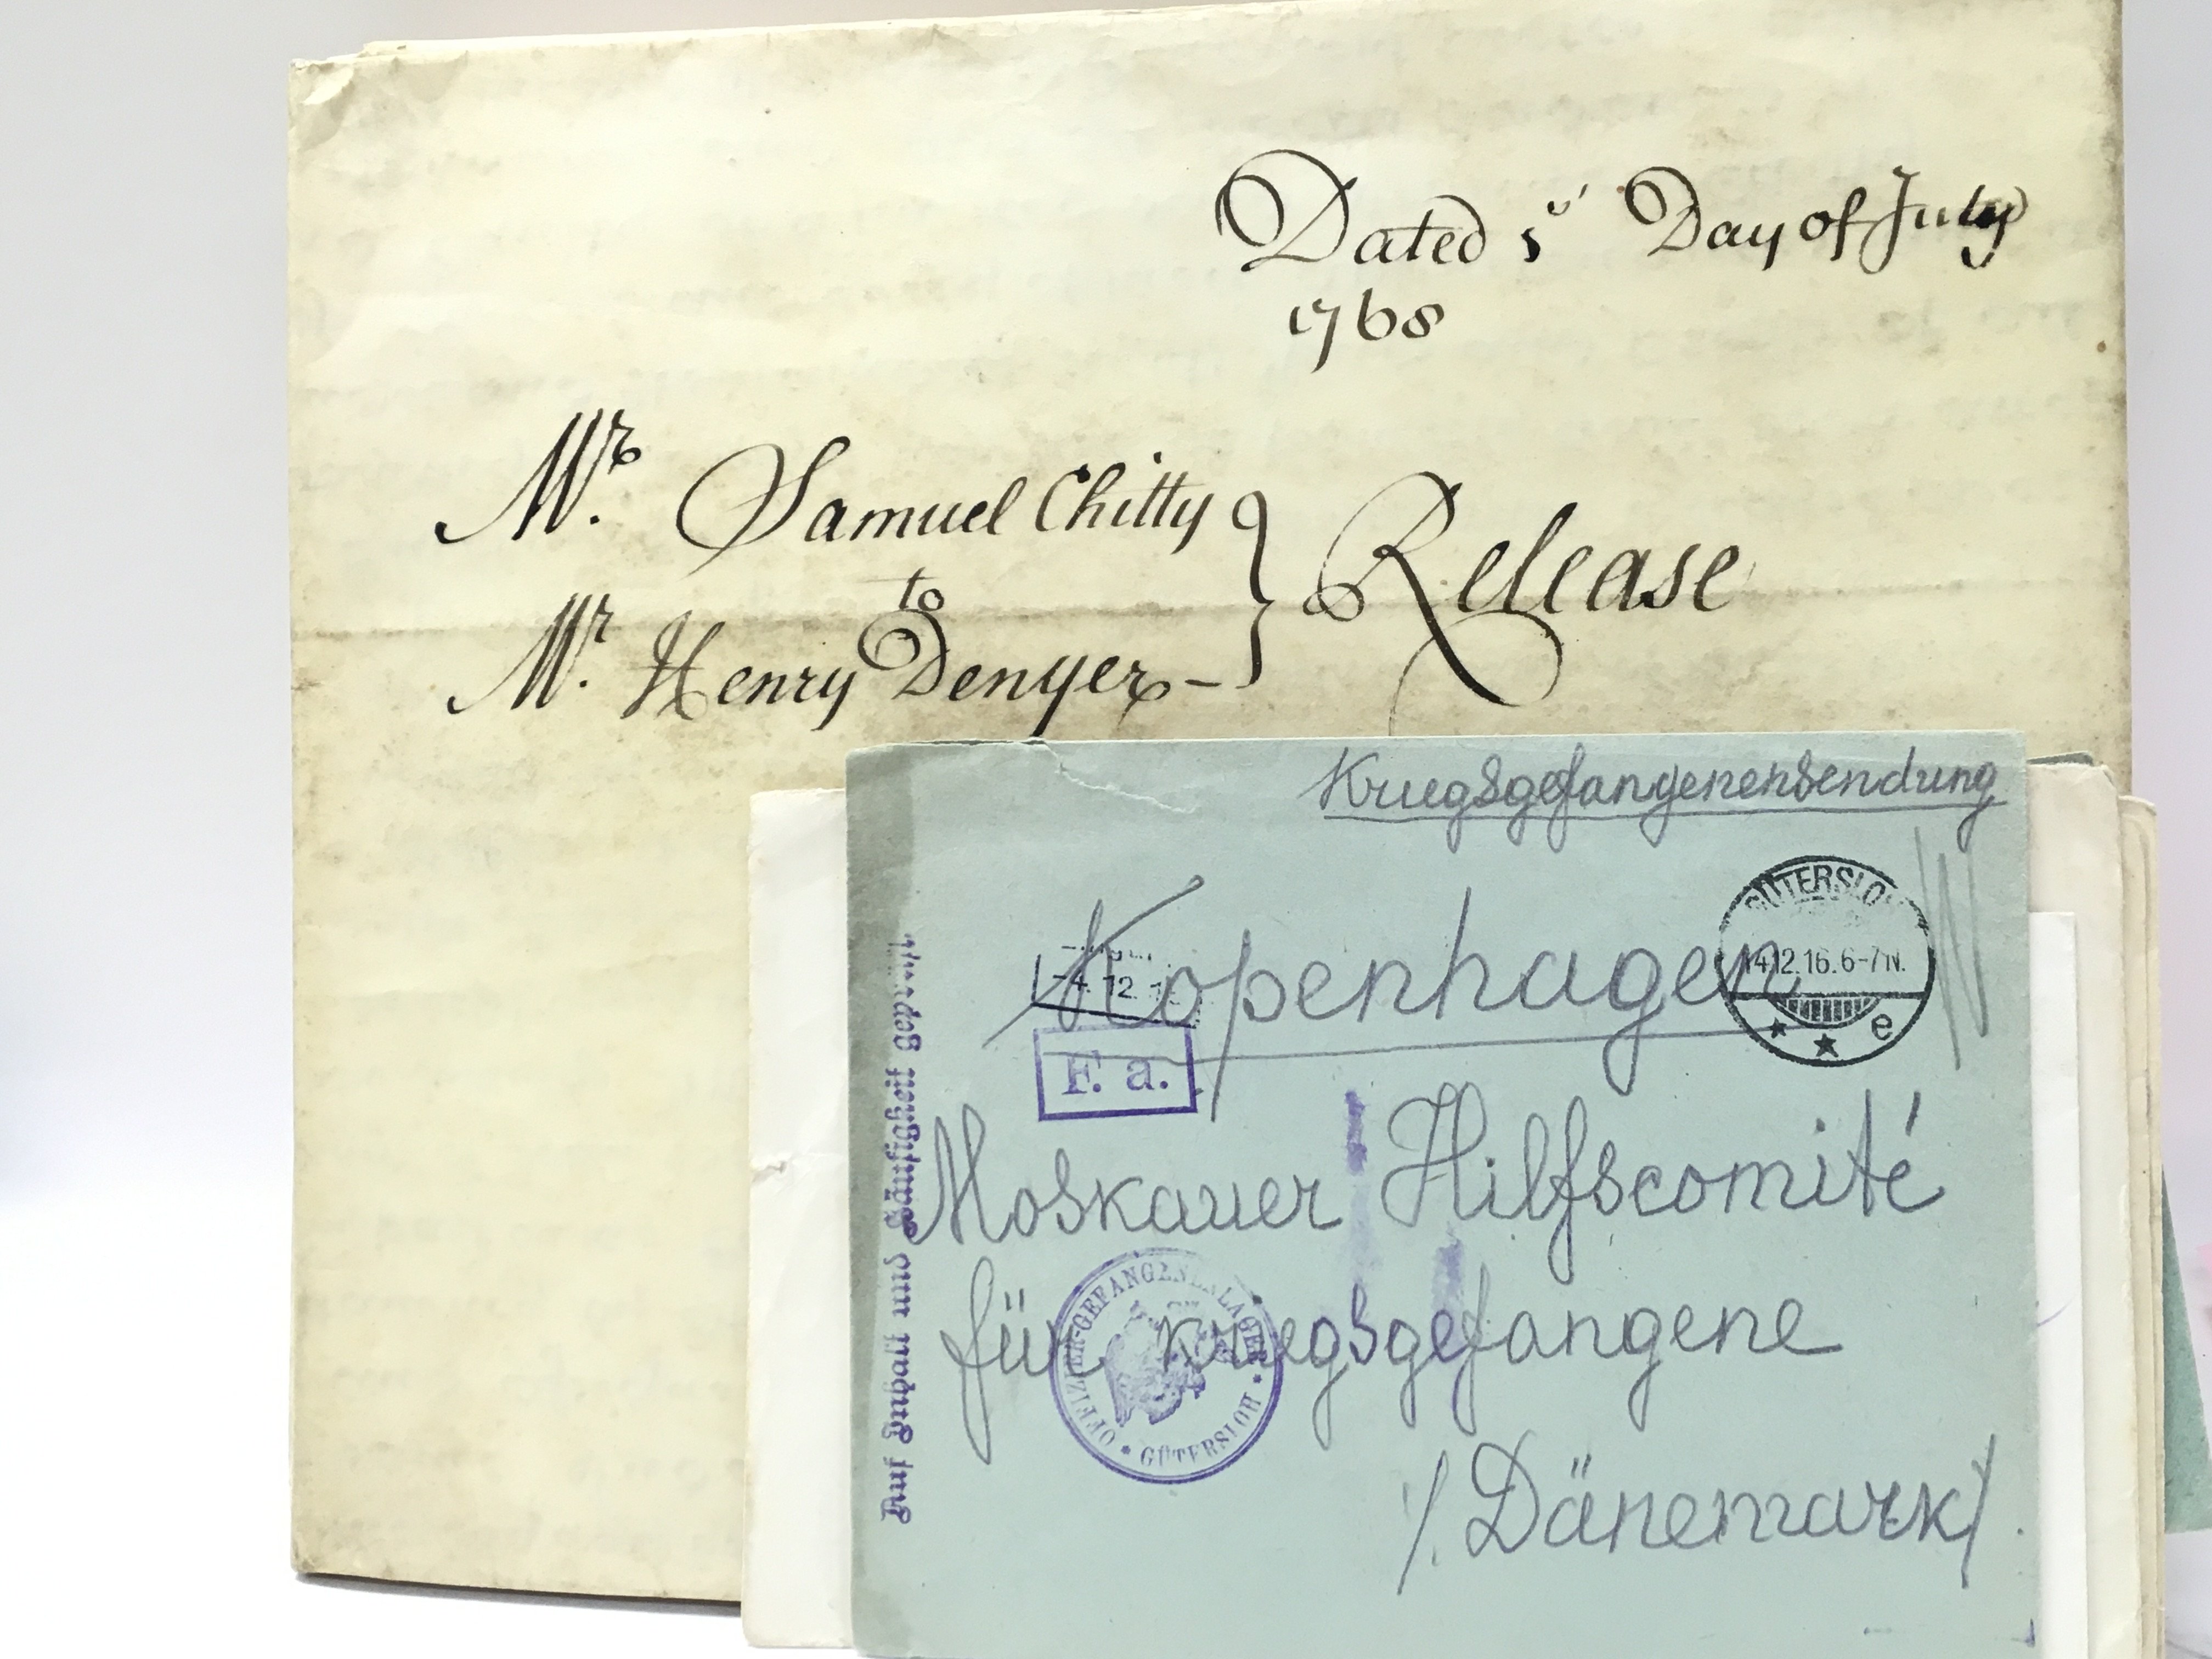 Dated 5th Day of July
1768
Mr. Samuel Chitty
to
Mr. Henry Denyer
Release
Kriegsgefangenensendung
Kopenhagen
GÜTERSLOH
14.12.16.6-7N.
e
4.12.
F. a.
Moskauer Hilfscomité
für Kriegsgefangene
/. Dänemark/.
OFFIZIER-GEFANGENENLAGER
GÜTERSLOH
Auf Inhalt und Zulässigkeit geprüft